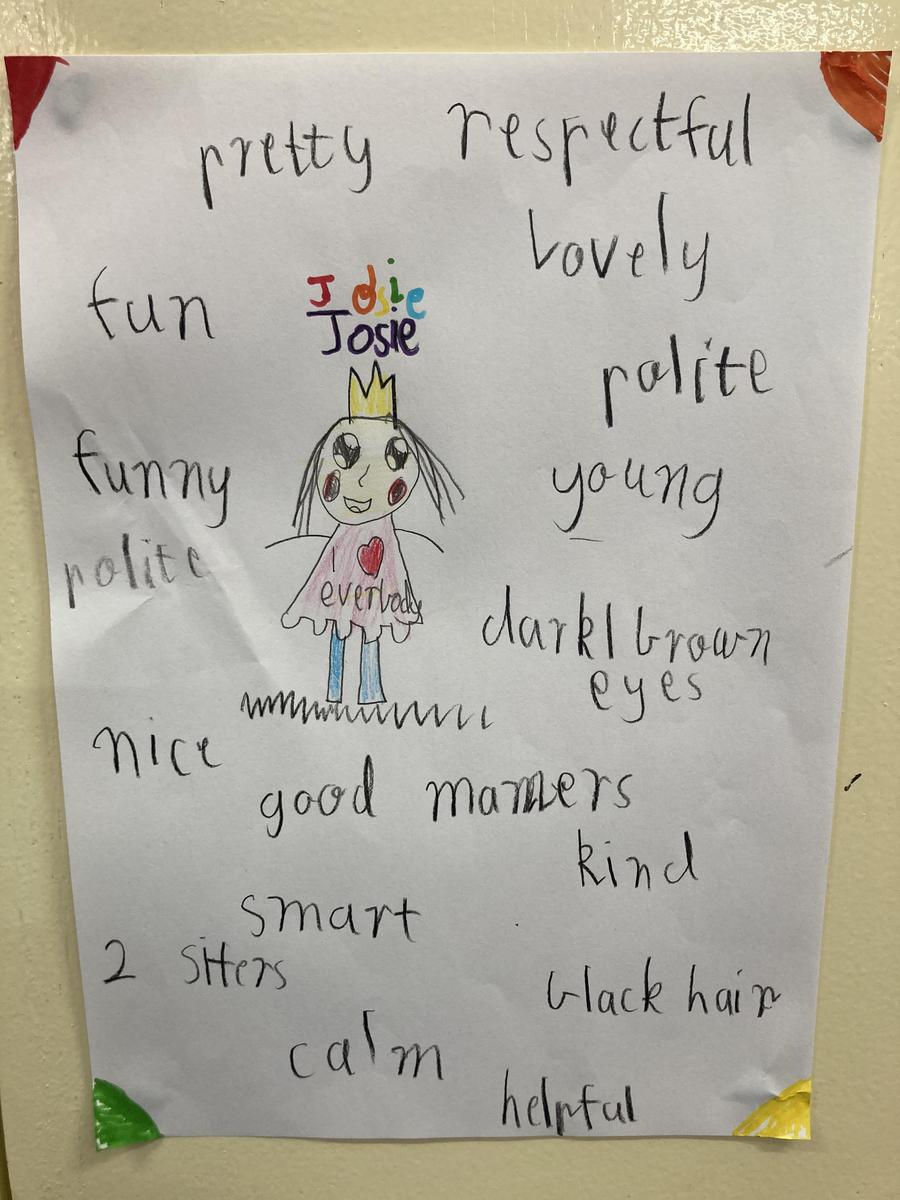 pretty
respectful
Lovely
fun
Josie
Josie
polite
funny
young
polite
I ❤ everbody
dark brown
eyes
nice
good manners
kind
smart
2 sitters
black hair
calm
helpful